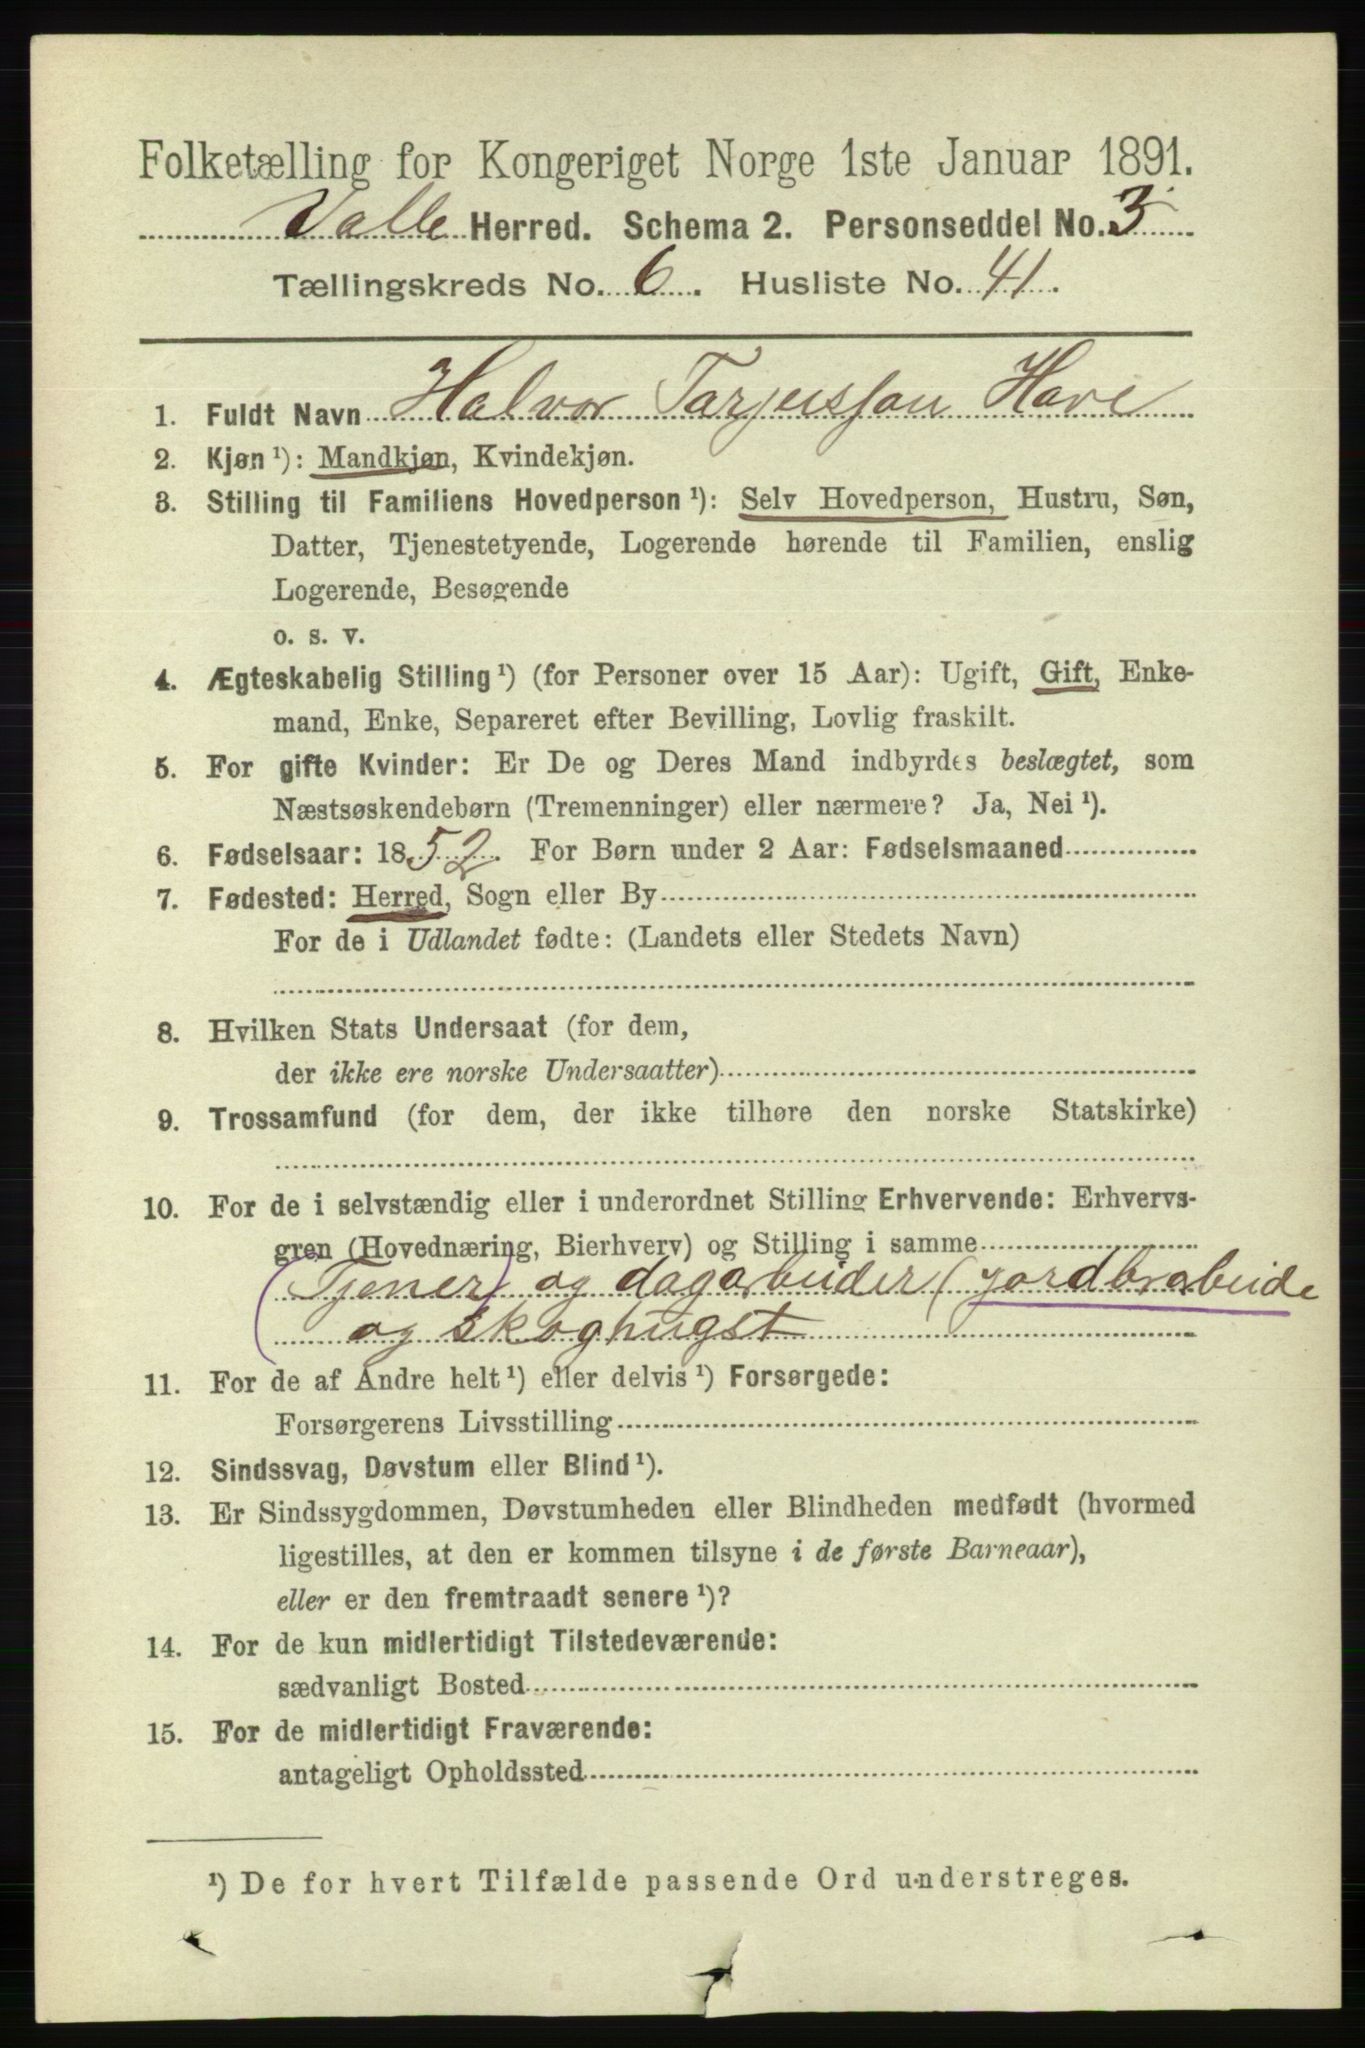 Folketælling for Kongeriget Norge 1ste Januar 1891.
Valle Herred. Schema 2. Personseddel No. 3
Tællingskreds No. 6. Husliste No. 41.
1. Fuldt Navn Halvor Tarjeisson Have
2. Kjøn ¹): Mandkjøn, Kvindekjøn.
3. Stilling til Familiens Hovedperson ¹): Selv Hovedperson, Hustru, Søn,
Datter, Tjenestetyende, Logerende hørende til Familien, enslig
Logerende, Besøgende
o. s. v.
4. Ægteskabelig Stilling ¹) (for Personer over 15 Aar): Ugift, Gift, Enke-
mand, Enke, Separeret efter Bevilling, Lovlig fraskilt.
5. For gifte Kvinder: Er De og Deres Mand indbyrdes beslægtet, som
Næstsøskendebørn (Tremenninger) eller nærmere? Ja, Nei ¹).
6. Fødselsaar: 1852. For Børn under 2 Aar: Fødselsmaaned
7. Fødested: Herred, Sogn eller By
For de i Udlandet fødte: (Landets eller Stedets Navn)
8. Hvilken Stats Undersaat (for dem,
der ikke ere norske Undersaatter)
9. Trossamfund (for dem, der ikke tilhøre den norske Statskirke)
10. For de i selvstændig eller i underordnet Stilling Erhvervende: Erhvervs-
gren (Hovednæring, Bierhverv) og Stilling i samme
(Tjener) og dagarbeider (jordbrabeide
og skoghugst
11. For de af Andre helt ¹) eller delvis ¹) Forsørgede:
Forsørgerens Livsstilling
12. Sindssvag, Døvstum eller Blind ¹).
13. Er Sindssygdommen, Døvstumheden eller Blindheden medfødt (hvormed
ligestilles, at den er kommen tilsyne i de første Barneaar),
eller er den fremtraadt senere ¹)?
14. For de kun midlertidigt Tilstedeværende:
sædvanligt Bosted
15. For de midlertidigt Fraværende:
antageligt Opholdssted
¹) De for hvert Tilfælde passende Ord understreges.